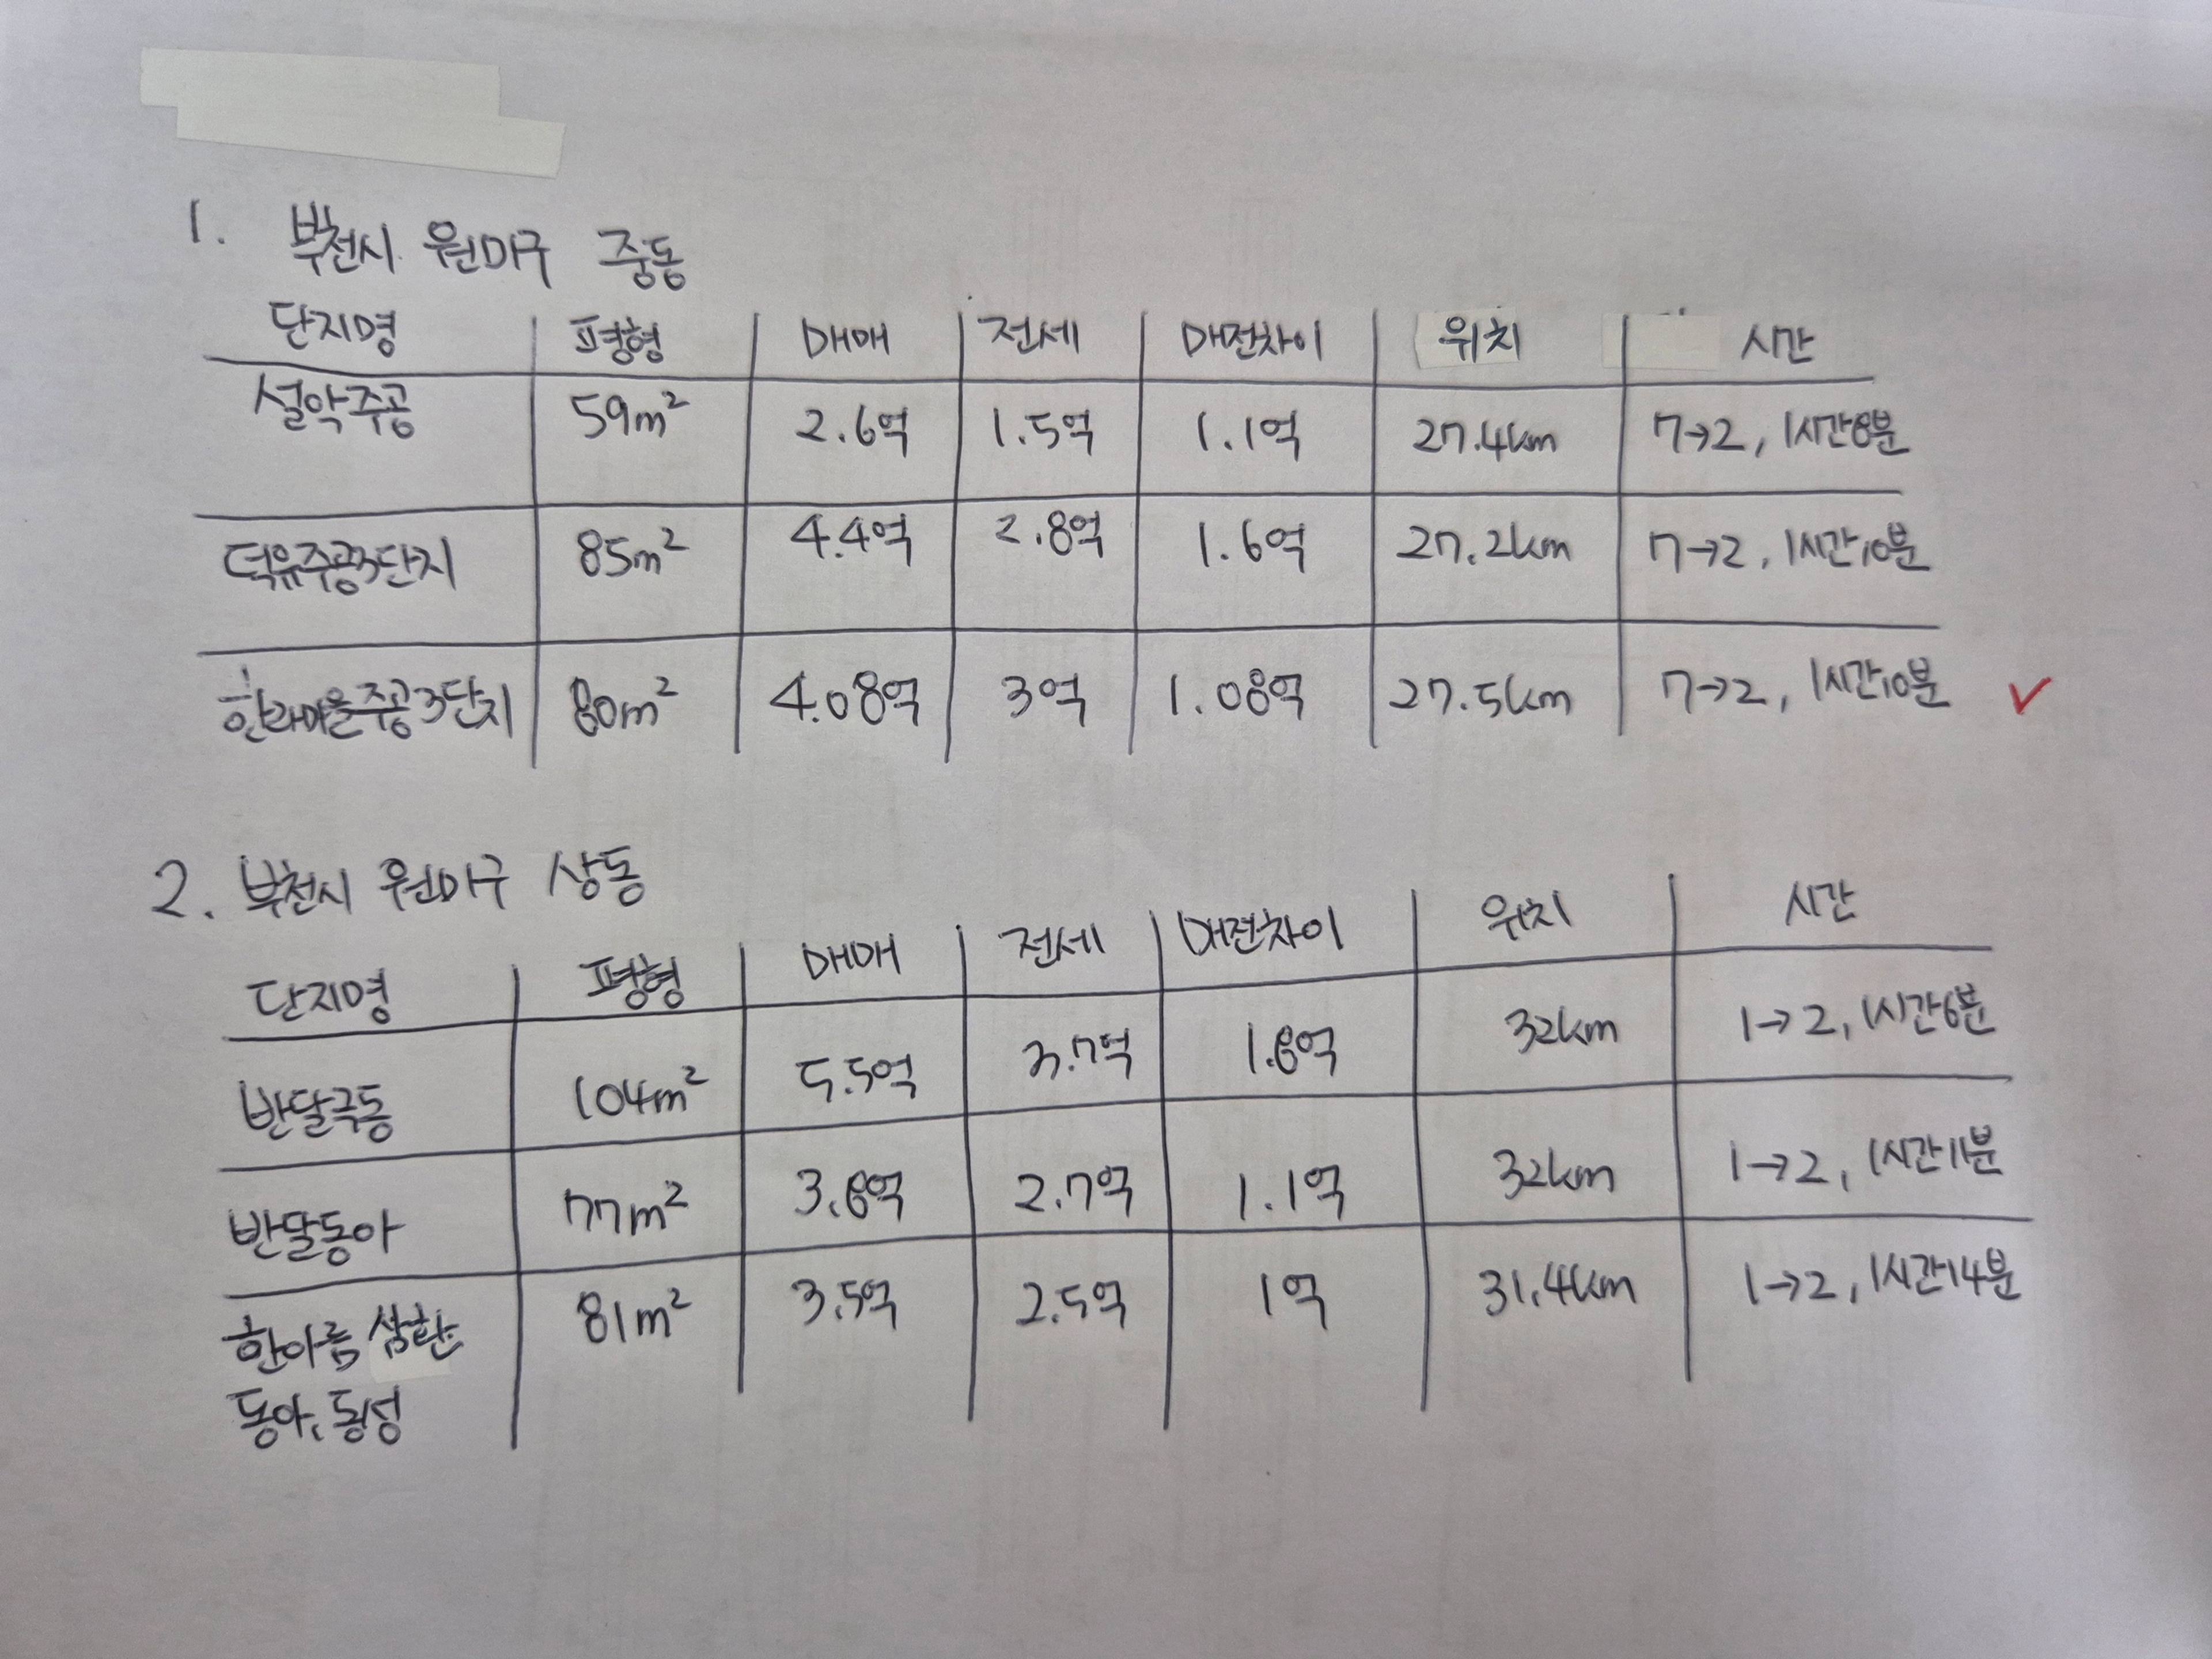 1. 부천시 원미구 중동
단지명 평형 매매 전세 매전차이 위치 시간
설악주공 59m² 2.6억 1.5억 1.1억 27.4km 7→2, 1시간8분
덕유주공3단지 85m² 4.4억 2.8억 1.6억 27.2km 7→2, 1시간10분
한라마을주공3단지 80m² 4.08억 3억 1.08억 27.5km 7→2, 1시간10분 ✓
2. 부천시 원미구 상동
단지명 평형 매매 전세 매전차이 위치 시간
반달극동 104m² 5.5억 3.7억 1.8억 32km 1→2, 1시간6분
반달동아 77m² 2.7억 1.1억 32km 1→2, 1시간11분
한아름 삼환 81m² 3.5억 2.5억 1억 31.4km 1→2, 1시간14분
동아, 동성